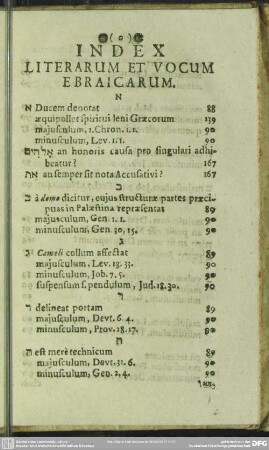 (0)
INDEX
LITERARUM ET VOCUM
EBRAICARUM.
א
א Ducem denotat 88
æquipollet spiritui leni Græcorum 139
majusculum, 1. Chron. 1. 1. 90
minusculum, Lev. 1:1. 90
אלהים an honoris causa pro singulari adhi-
beatur? 167
את an semper sit nota Accusativi? 167
ב
ב à domo dicitur, cujus structuræ partes præci-
puas in Palæstina repræsentat 89
majusculum, Gen. 1. 1. 90
minusculum, Gen. 30, 15. 90
ג
ג Cameli collum affectat 89
majusculum, Lev. 13. 33. 90
minusculum, Job. 7. 5. 90
suspensum suspendulum, Jud. 18. 30. 90
ד
ד delineat portam 89
majusculum, Devt. 6. 4. 90
minusculum, Prov. 28. 17. 90
ה
ה est merè technicum 89
majusculum, Devt. 32. 6. 90
minusculum, Gen. 2. 4. 90